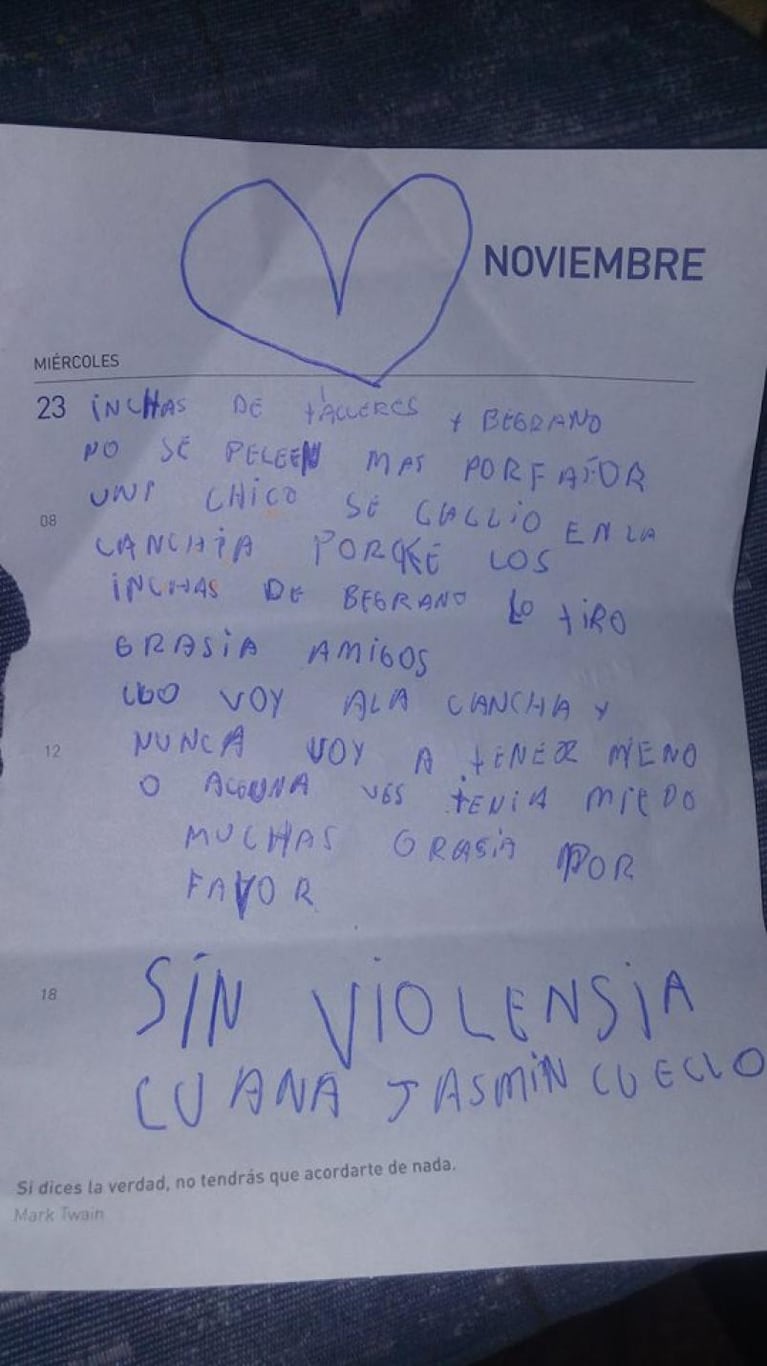 NOVIEMBRE
MIÉRCOLES
23 INCHAS DE TALLERES Y BEGRANO
NO SE PELEEN MAS PORFAFOR
UNI CHICO SE CALLIO EN LA
08
CANCHIA PORQKE LOS
INCHAS DE BEGRANO LO TIRO
GRASIA AMIGOS
LLO VOY ALA CANCHA Y
12 NUNCA VOY A TENER MIENO
O ALGUNA VES TENIA MIEDO
MUCHAS GRASIA POR
FAVOR
18 SIN VIOLENSIA
LUANA JASMIN CUELLO
Si dices la verdad, no tendrás que acordarte de nada.
Mark Twain